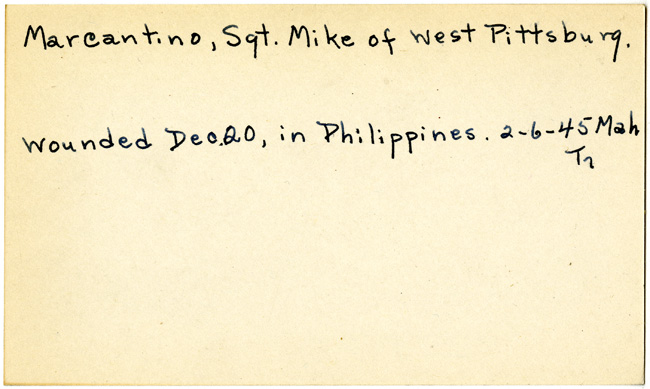 Marcantino, Sgt. Mike of West Pittsburg.
Wounded Dec.20, in Philippines. 2-6-45 Mah
Tr